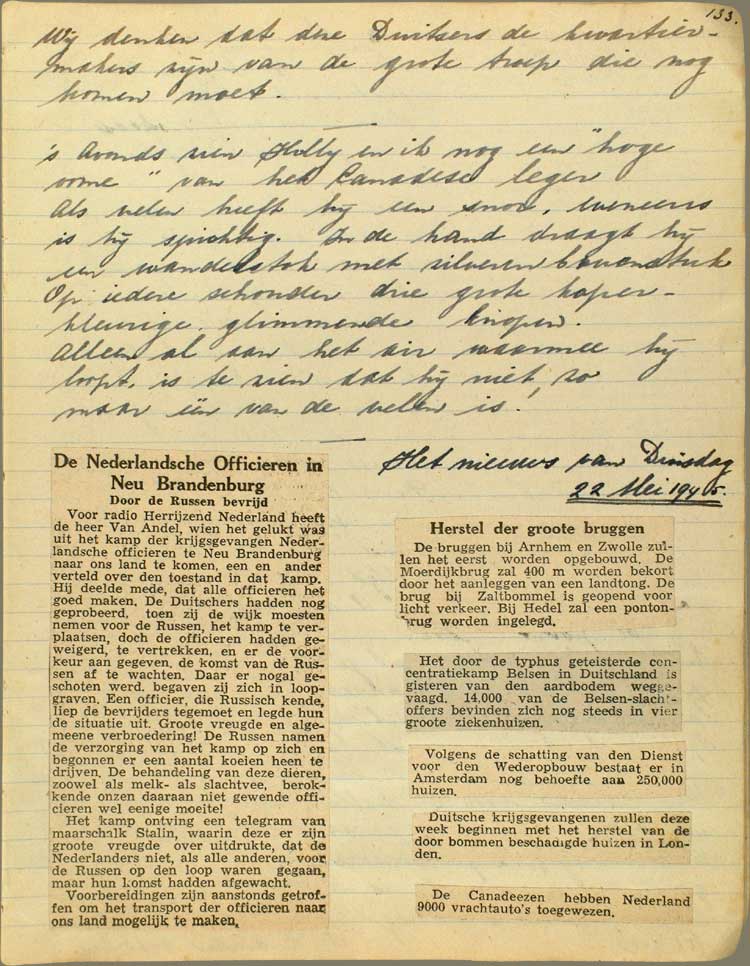 133.
Wij denken dat deze Duitsers de kwartier-
makers zijn van de grote troep die nog
komen moet.
's Avonds zien Holly en ik nog een "hoge
ome" van het Canadese leger
Als velen heeft hij een snor, eveneens
is hij spichtig. In de hand draagt hij
een wandelstok met zilveren bovenstuk
Op iedere schouder drie grote koper-
kleurige, glimmende knopen.
Alleen al aan het air waarmee hij
loopt, is te zien dat hij niet, zo
maar één van de velen is!
Het nieuws van Dinsdag
22 Mei 1945.
De Nederlandsche Officieren in
Neu Brandenburg
Door de Russen bevrijd
Voor radio Herrijzend Nederland heeft
de heer Van Andel, wien het gelukt was
uit het kamp der krijgsgevangen Neder-
landsche officieren te Neu Brandenburg
naar ons land te komen, een en ander
verteld over den toestand in dat kamp.
Hij deelde mede, dat alle officieren het
goed maken. De Duitschers hadden nog
geprobeerd, toen zij de wijk moesten
nemen voor de Russen, het kamp te ver-
plaatsen, doch de officieren hadden ge-
weigerd, te vertrekken, en er de voor-
keur aan gegeven, de komst van de Rus-
sen af te wachten. Daar er nogal ge-
schoten werd, begaven zij zich in loop-
graven. Een officier, die Russisch kende,
liep de bevrijders tegemoet en legde hun
de situatie uit. Groote vreugde en alge-
meene verbroedering! De Russen namen
de verzorging van het kamp op zich en
begonnen er een aantal koeien heen te
drijven. De behandeling van deze dieren,
zoowel als melk- als slachtvee, berok-
kende onzen daaraan niet gewende offi-
cieren wel eenige moeite!
Het kamp ontving een telegram van
maarschalk Stalin, waarin deze er zijn
groote vreugde over uitdrukte, dat de
Nederlanders niet, als alle anderen, voor
de Russen op den loop waren gegaan,
maar hun komst hadden afgewacht.
Voorbereidingen zijn aanstonds getrof-
fen om het transport der officieren naar
ons land mogelijk te maken.
Herstel der groote bruggen
De bruggen bij Arnhem en Zwolle zul-
len het eerst worden opgebouwd. De
Moerdijkbrug zal 400 m worden bekort
door het aanleggen van een landtong. De
brug bij Zaltbommel is geopend voor
licht verkeer. Bij Hedel zal een ponton-
brug worden ingelegd.
Het door de typhus geteisterde con-
centratiekamp Belsen in Duitschland is
gisteren van den aardbodem wegge-
vaagd. 14,000 van de Belsen-slacht-
offers bevinden zich nog steeds in vier
groote ziekenhuizen.
Volgens de schatting van den Dienst
voor den Wederopbouw bestaat er in
Amsterdam nog behoefte aan 250,000
huizen.
Duitsche krijgsgevangenen zullen deze
week beginnen met het herstel van de
door bommen beschadigde huizen in Lon-
den.
De Canadeezen hebben Nederland
9000 vrachtauto's toegewezen.